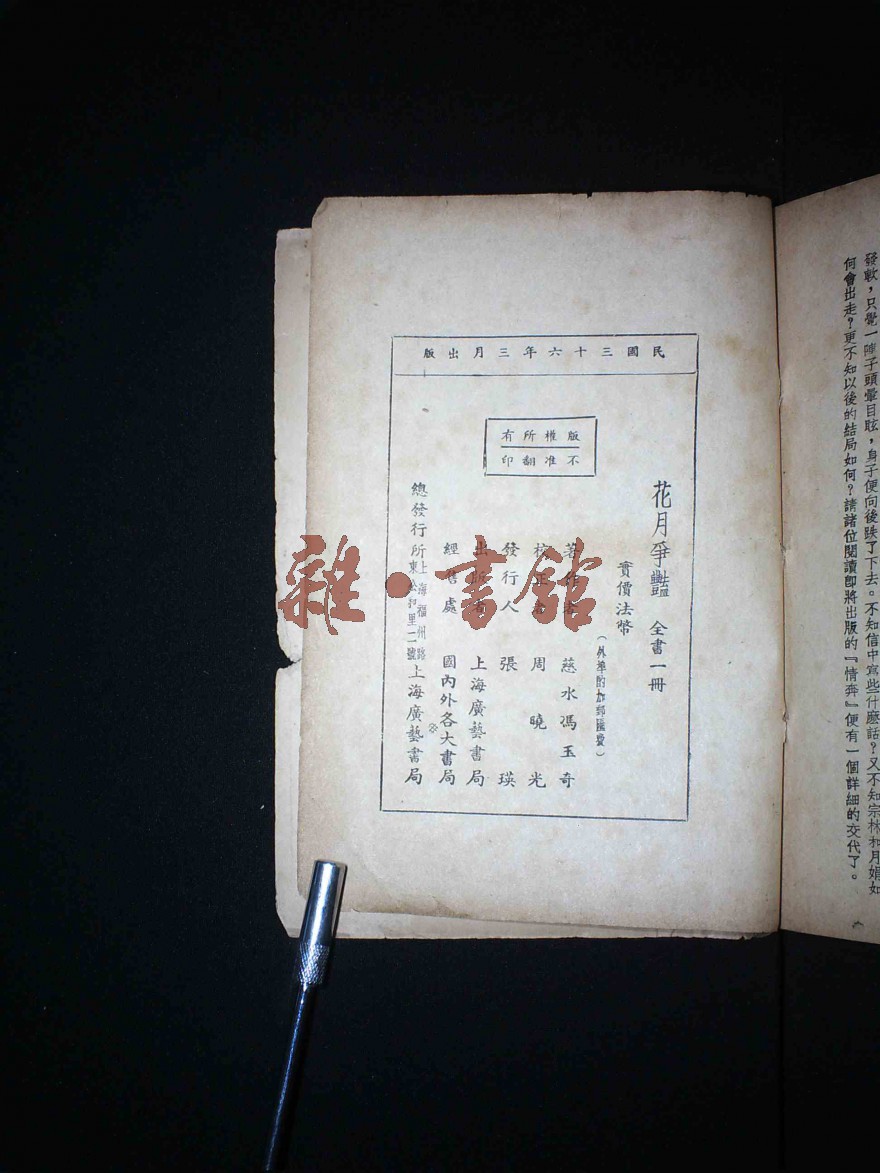 民國三十六年三月出版
版權所有
不准翻印
花月爭豔 全書一冊
實價法幣
(外埠酌加郵匯費)
著作者 慈水馮玉奇
校正者 周曉光
發行人 張瑛
出版者 上海廣藝書局
經售處 國內外各大書局
總發行所 上海福州路東公和里二號 上海廣藝書局
發軟，只覺一陣子頭暈目眩，身子便向後跌了下去。不知信中寫些什麽話？又不知宗林和月娟如
何會出走？更不知以後的結局如何？請諸位閱讀卽將出版的『情奔』便有一個詳細的交代了。
雜·書館